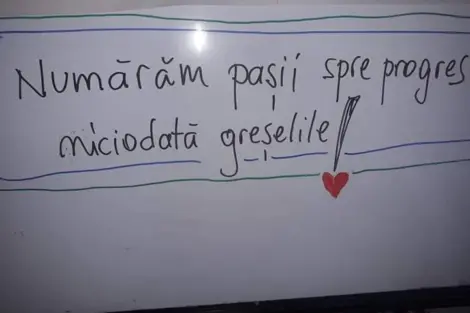 Numărăm pașii spre progres
niciodată greșelile!